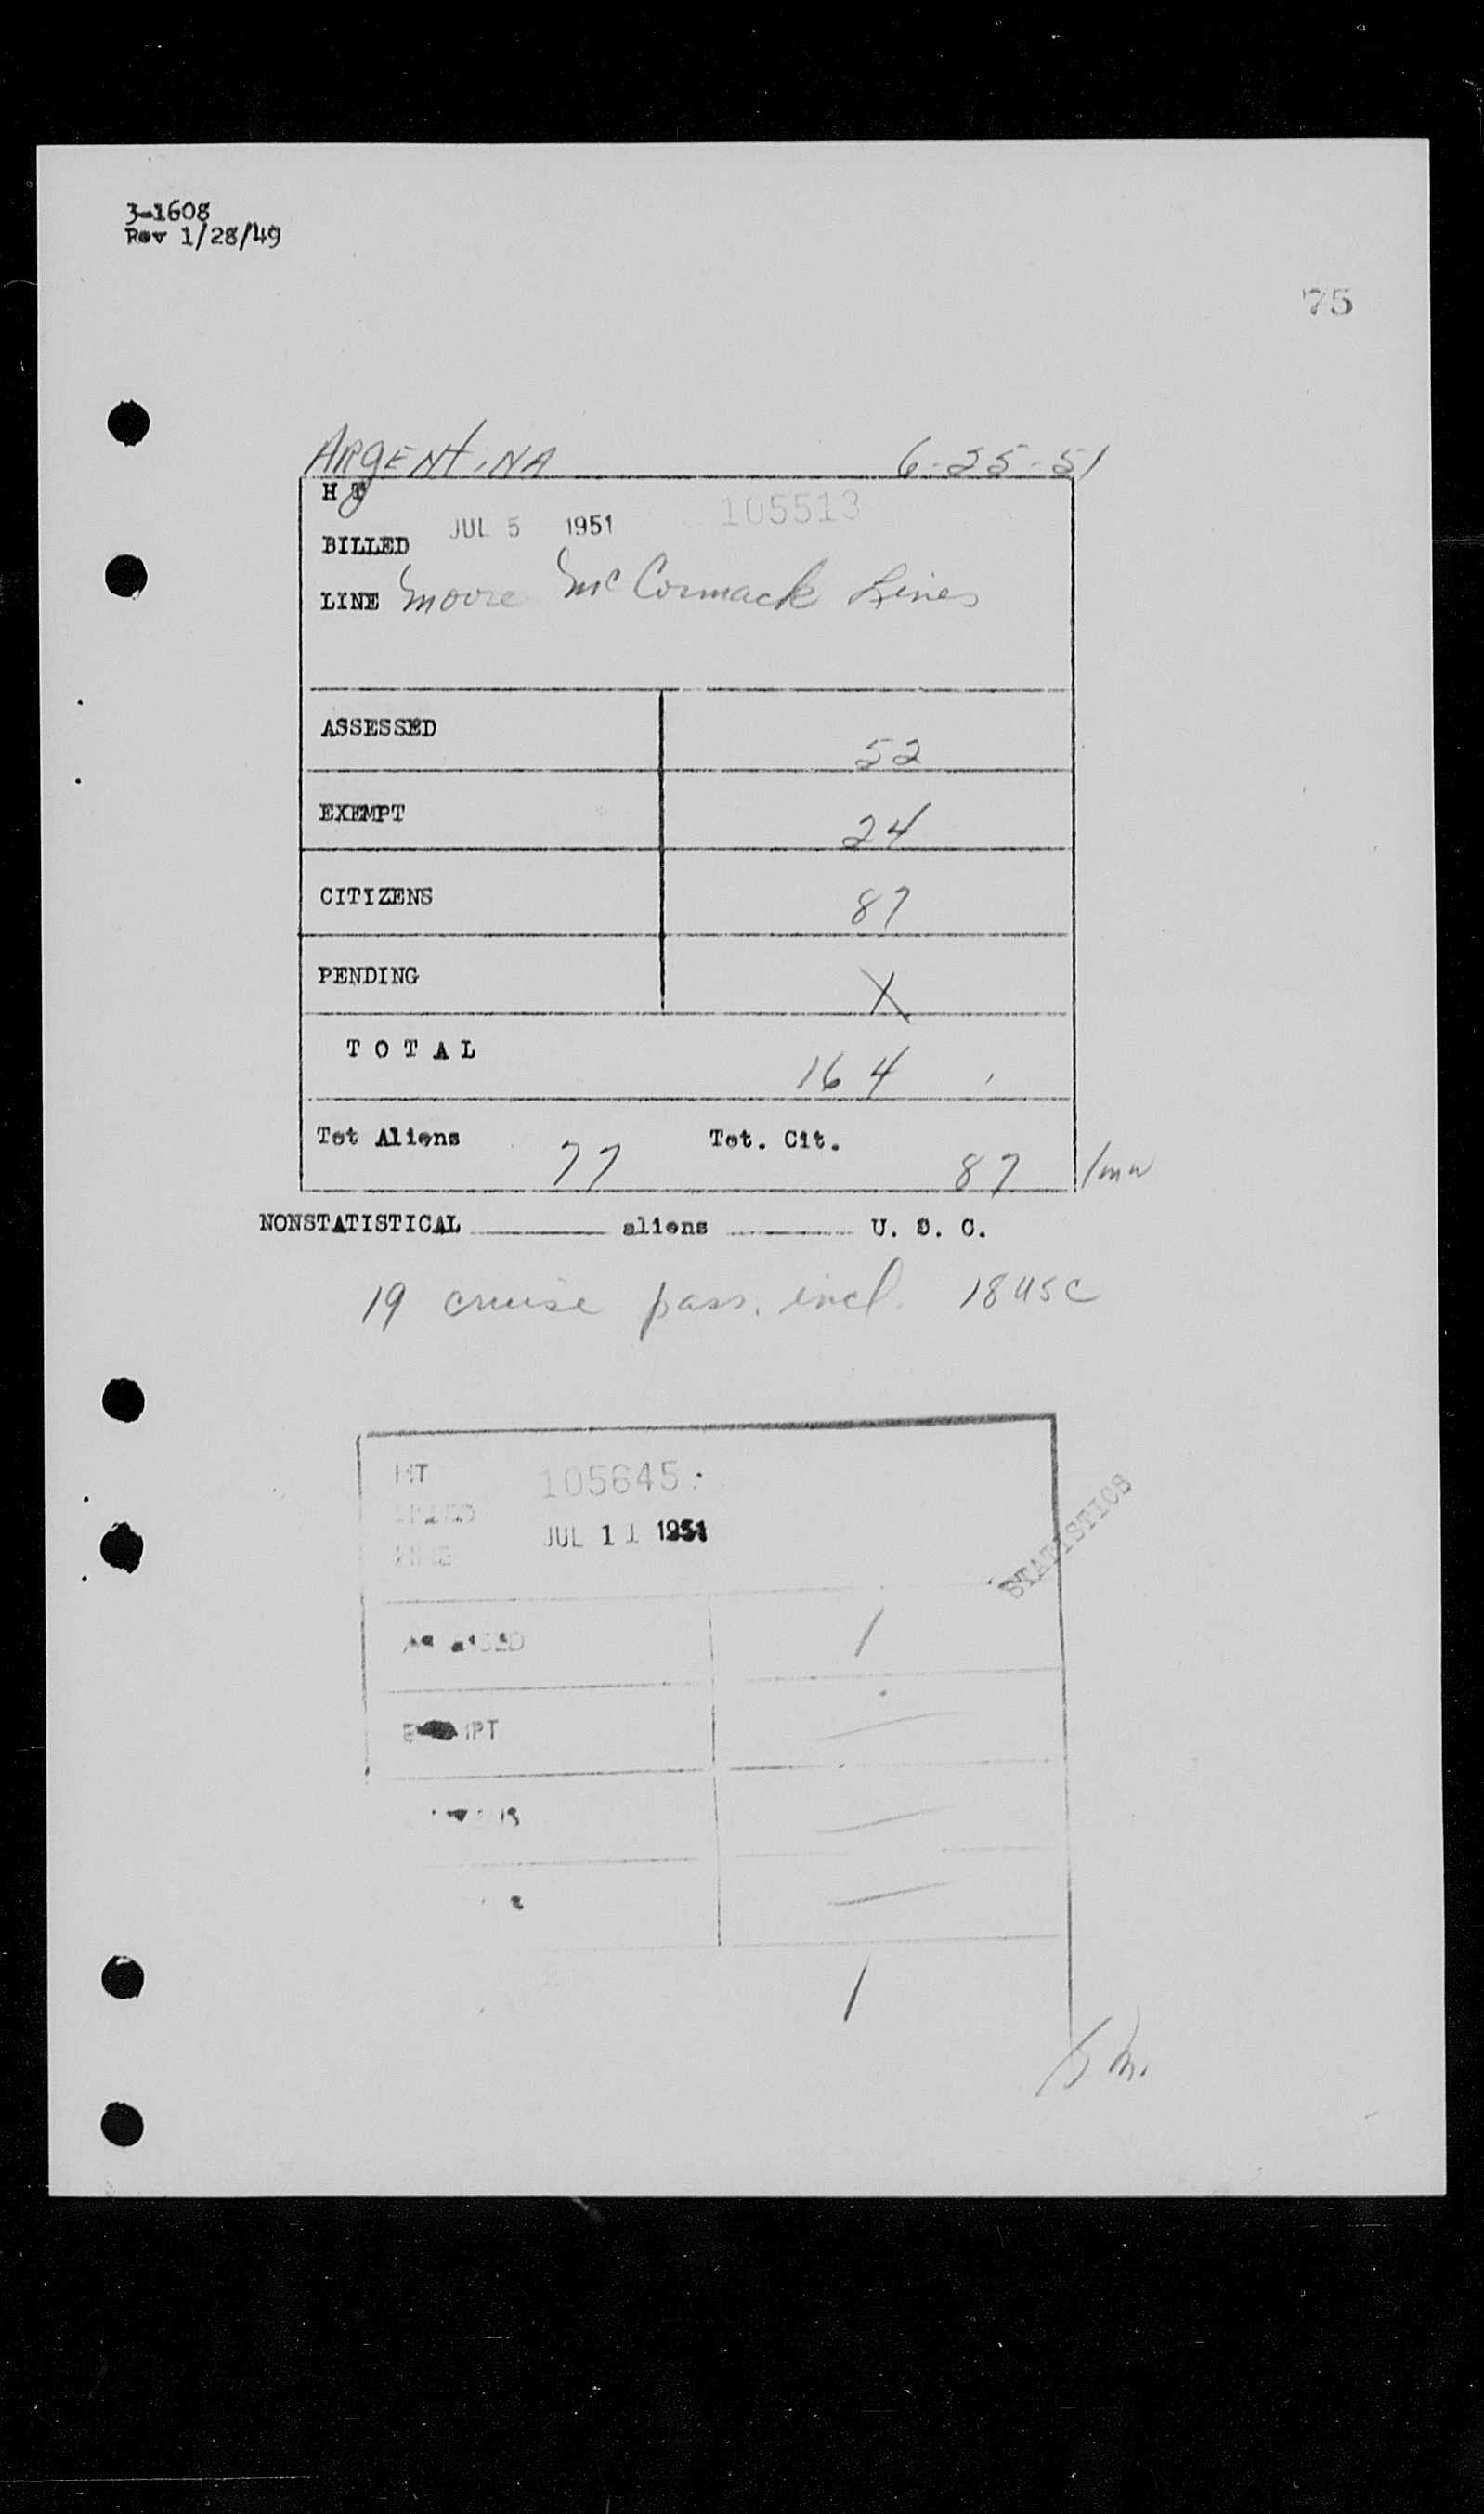 3-1608
Rev 1/28/49
75
ARgENtiNA 6-25-51
H T
105513
BILLED JUL 5 1951
LINE Moore McCormack Lines
ASSESSED 52
EXEMPT 24
CITIZENS 87
PENDING X
T O T A L 164
Tot Aliens 77 Tot. Cit. 87 /mw
NONSTATISTICAL aliens U. S. C.
19 cruise pass. incl. 18 USC
HT 105645
JUL 11 1951
STATISTICS
1
1